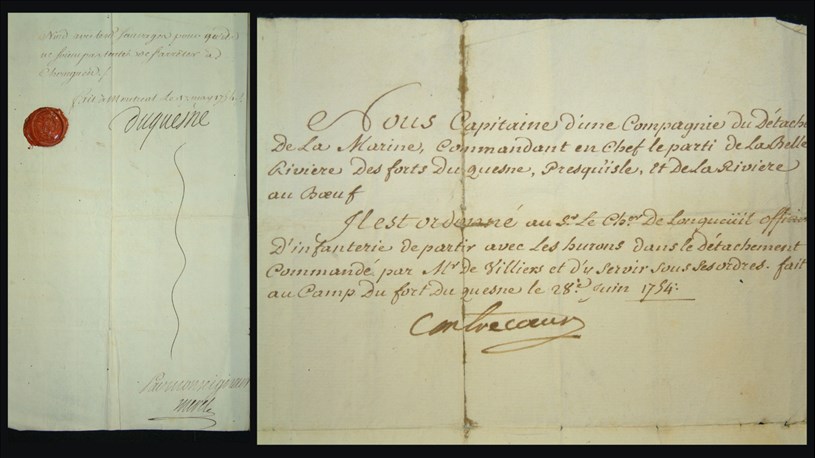 ne s'arrêter à
fait à Montreal le
Duquesne
Par monseigneur
Nous Capitaine d'une Compagnie du Détache
De La Marine, Commandant en Chef le parti de La Belle
Riviere Des forts Du quesne, Presquisle, et De La Riviere
au Bœuf
Il est ordonné au Sr. Le Cher. De Longueüil officier
D'infanterie de partir avec Les hurons dans le détachement
Commandé par Mr. de Villiers et d'y servir sous ses ordres. fait
au Camp Du fort Du quesne le 28e. Juin 1754.
Contrecœur